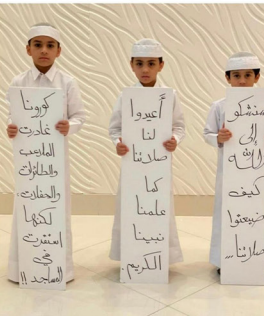 كورونا
غادرت
الملاعب
والطائرات
والحفلات
لكنها
استقرت
في
المساجد !!
أعيدوا
لنا
صلاتنا
كما
علمنا
نبينا
الكريم .
سنشكو
إلى
الله
كيف
ضيعتوا
صلاتنا ...